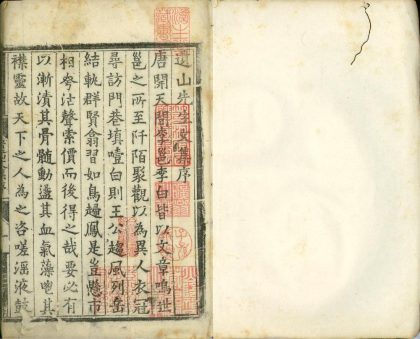 遺山先生文集序
唐開天間李邕李白皆以文章鳴世
邕之所至阡陌聚觀以為異人衣冠
尋訪門巷填噎白則王公趨風列岳
結軌群賢翕習如鳥趨鳳是豈懸市
相夸沽聲索價而後得之哉要必有
以漸漬其骨髓動盪其血氣藻飽其
襟靈故天下之人為之咨嗟滛液鼓